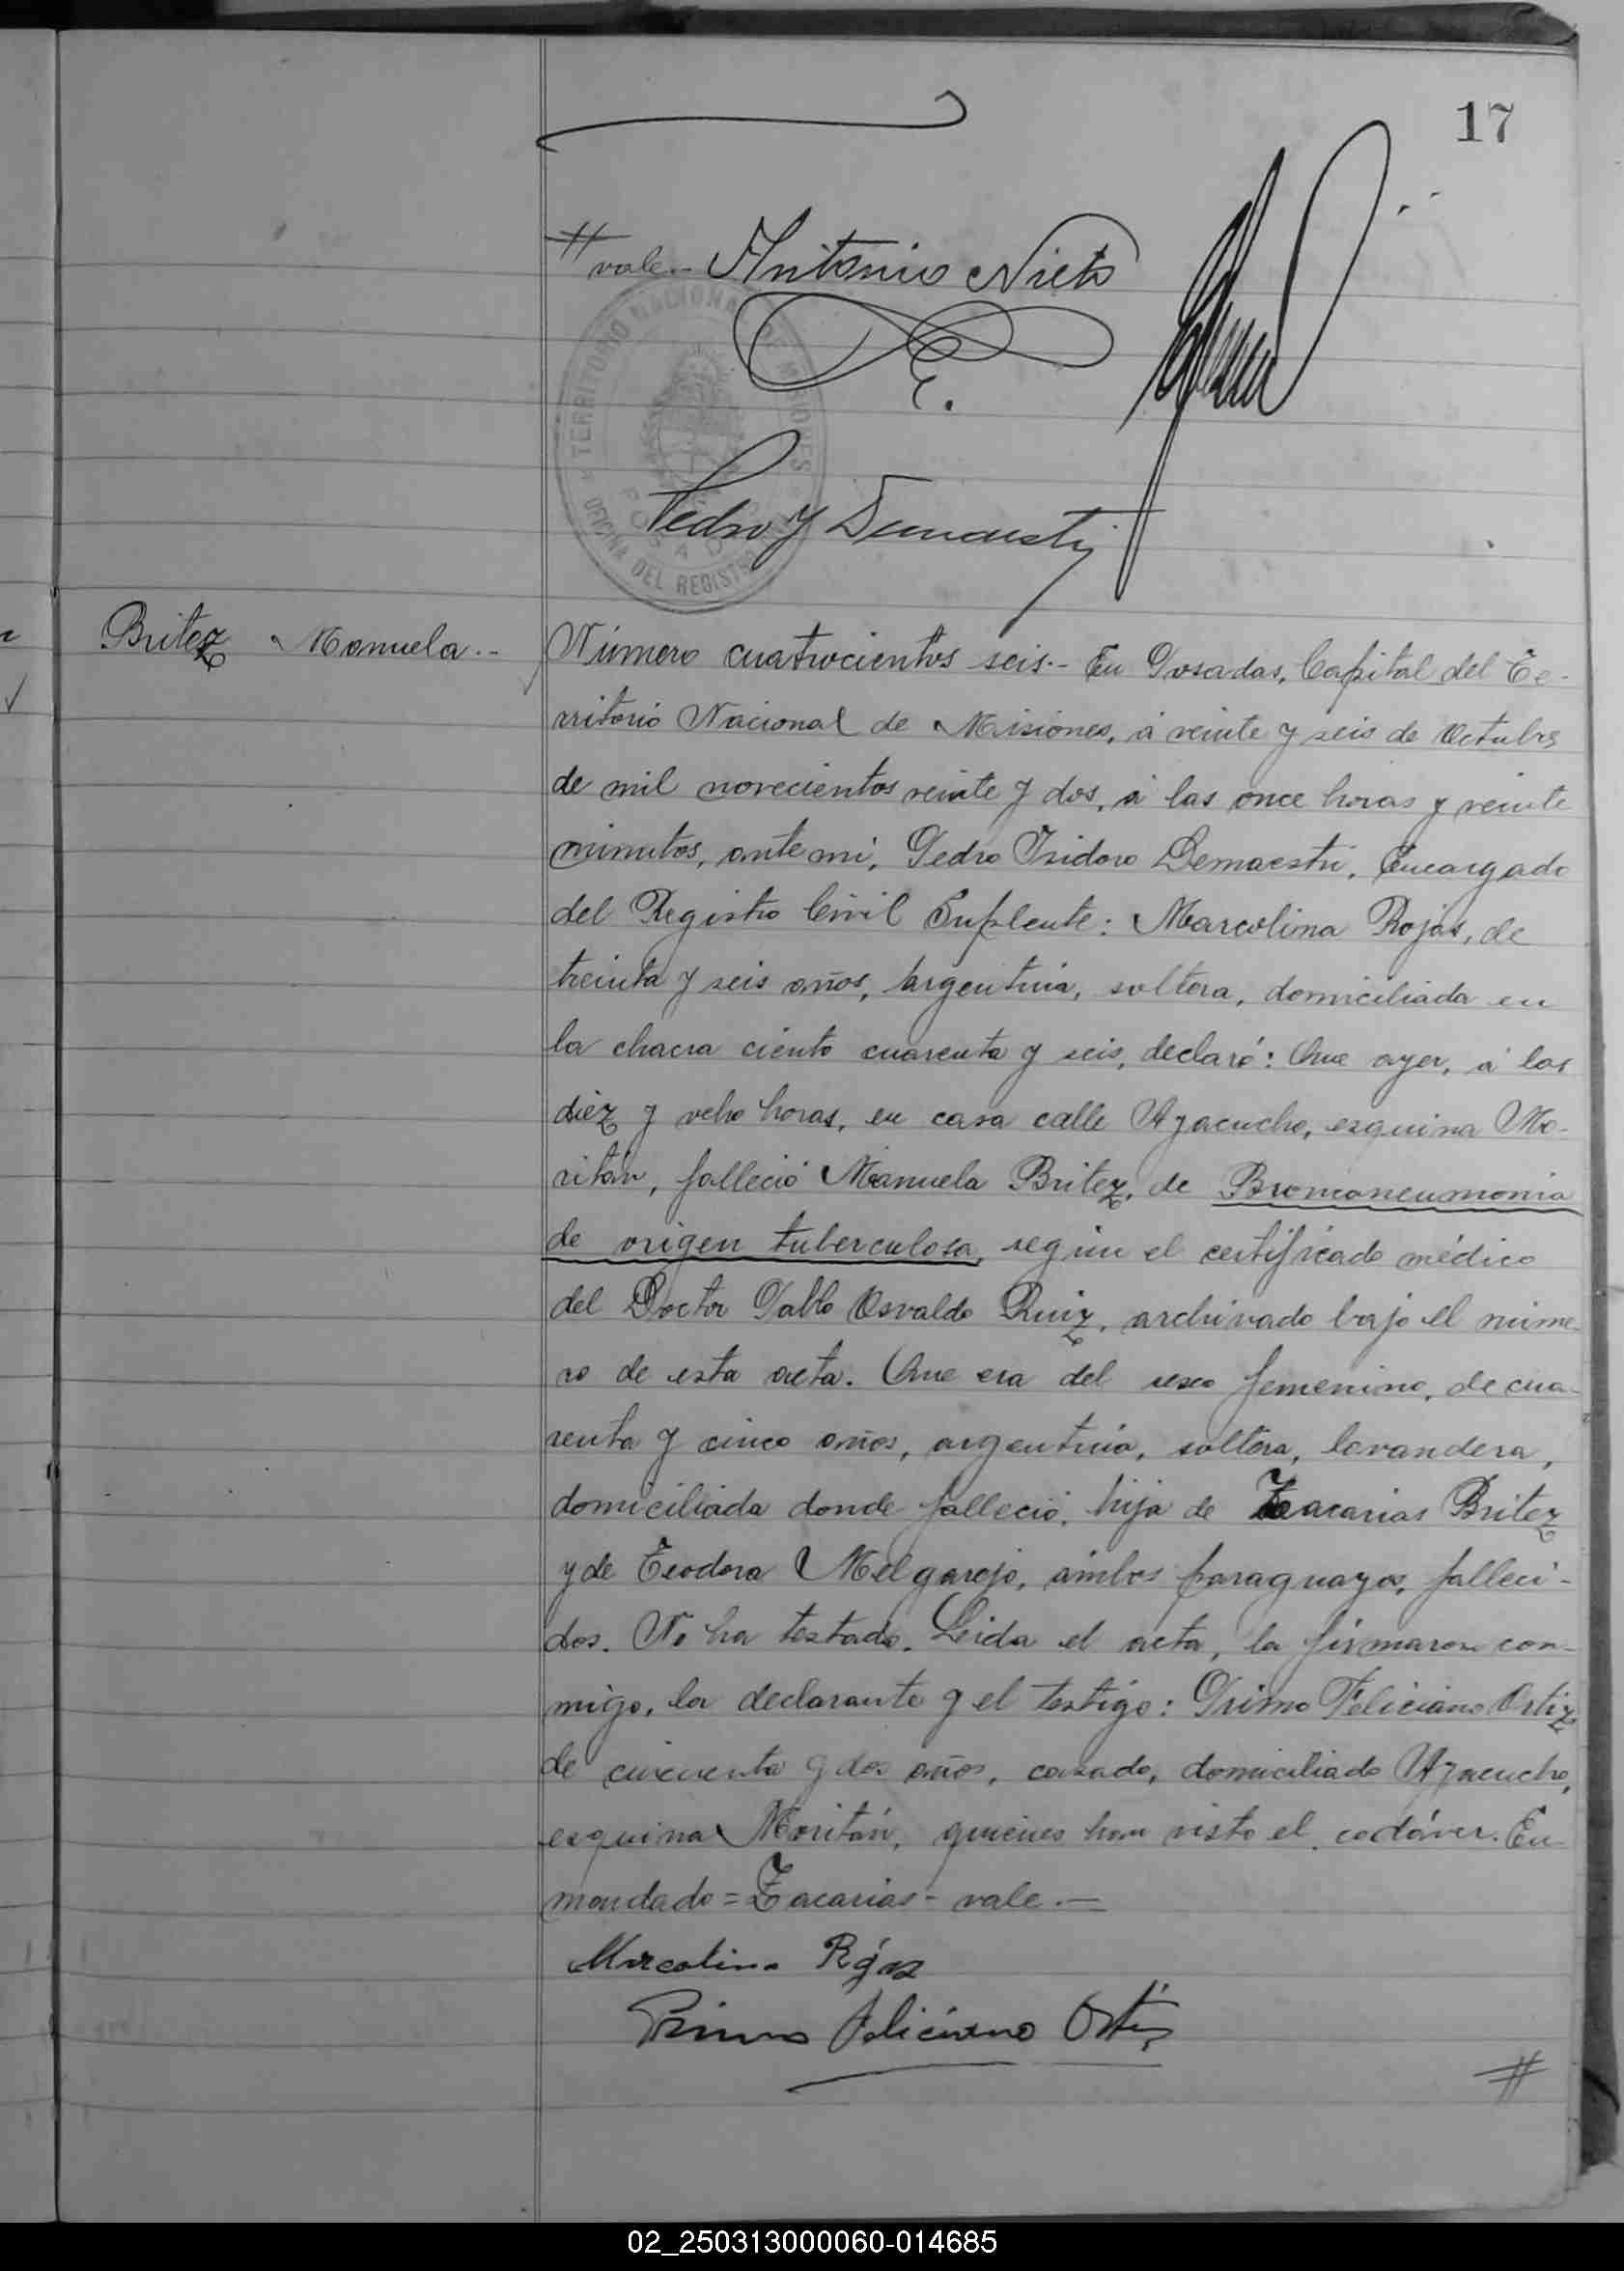 17
vale.- Antonio Nieto
TERRITORIO NACIONAL DE MISIONES
POSADAS
OFICINA DEL REGISTRO
Pedro Y Demaestri
Britez Manuela.-
Número cuatrocientos seis.- En Posadas, Capital del Te-
rritorio Nacional de Misiones, á veinte y seis de Octubre
de mil novecientos veinte y dos, á las once horas y veinte
minutos, ante mi, Pedro Isidoro Demaestri, Encargado
del Registro Civil Suplente: Marcolina Rojas, de
treinta y seis años, argentina, soltera, domiciliada en
la chacra ciento cuarenta y seis, declaró: Que ayer, á las
diez y ocho horas, en casa calle Ayacucho, esquina Mo-
ritán, falleció Manuela Britez, de Bronconeumonia
de origen tuberculosa, según el certificado médico
del Doctor Pablo Osvaldo Ruiz, archivado bajo el núme-
ro de esta acta. Que era del sexo femenino, de cua-
renta y cinco años, argentina, soltera, lavandera,
domiciliada donde falleció, hija de Zacarias Britez
y de Teodora Melgarejo, ámbos paraguayos, falleci-
dos. No ha testado. Leida el acta, la firmaron con-
migo, la declarante y el testigo: Primo Feliciano Ortiz
de cincuenta y dos años, casado, domiciliado Ayacucho,
esquina Moritán, quienes han visto el cadáver. En-
mendado = Zacarias - vale.-
Marcolina Rojas
Primo Feliciano Ortiz
#
02_250313000060-014685